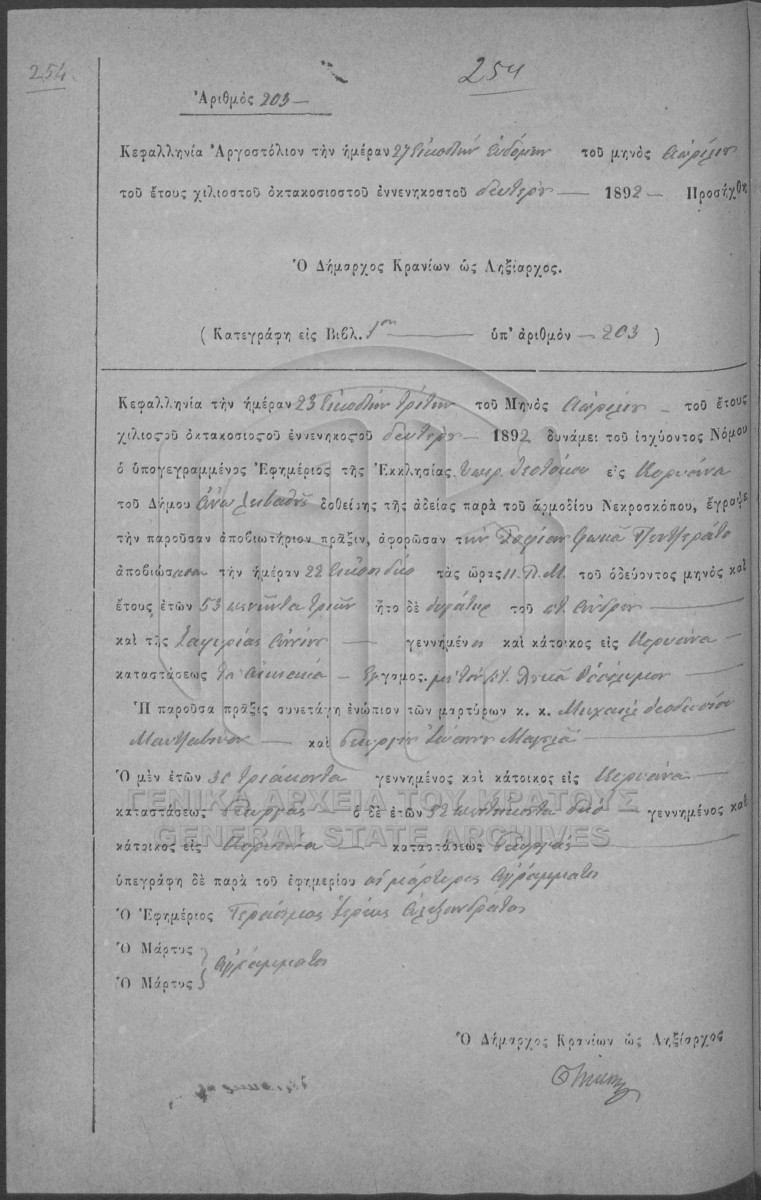 254 254
Ἀριθμὸς 203
Κεφαλληνία Ἀργοστόλιον τὴν ἡμέραν 27 Εἰκοστὴν ἑβδόμην τοῦ μηνὸς Ἀπριλίου
τοῦ ἔτους χιλιοστοῦ ὀκτακοσιοστοῦ ἐννενηκοστοῦ δευτέρου 1892 Προσήχθη
Ὁ Δήμαρχος Κρανίων ὡς Ληξίαρχος.
(Κατεγράφη εἰς Βιβλ. 1ον ὑπ' ἀριθμὸν 203)
Κεφαλληνία τὴν ἡμέραν 23 Εἰκοστὴν τρίτην τοῦ Μηνὸς Ἀπριλίου τοῦ ἔτους
χιλιοςοῦ ὀκτακοσιοςοῦ ἐννενηκοςοῦ δευτέρου 1892 δυνάμει τοῦ ἰσχύοντος Νόμου
ὁ ὑπογεγραμμένος Ἐφημέριος τῆς Ἐκκλησίας Ὑπερ. Θεοτόκου εἰς
τοῦ Δήμου δοθείσης τῆς ἀδείας παρὰ τοῦ ἁρμοδίου Νεκροσκόπου, ἔγραψε
τὴν παροῦσαν ἀποβιωτήριον πρᾶξιν, ἀφορῶσαν τὴν Σοφίαν Φωκᾶ
ἀποβιώσασαν τὴν ἡμέραν 22 Εἴκοσι δύο τὰς ὥρας 11 Π.Μ. τοῦ ὁδεύοντος μηνὸς καὶ
ἔτους ἐτῶν 53 πενῆντα τριῶν ἦτο δὲ θυγάτηρ τοῦ ποτ. Ἀνδρέου
καὶ τῆς γεννημένη καὶ κάτοικος εἰς
καταστάσεως τὰ οἰκιακὰ Ἐργομος. μὲ τὸν
Ἡ παροῦσα πρᾶξις συνετάγη ἐνώπιον τῶν μαρτύρων κ. κ. Μιχαὴλ Θεοδωσίου
καὶ Γεωργίου Ἰωάννου
Ὁ μὲν ἐτῶν 30 τριάκοντα γεννημένος καὶ κάτοικος εἰς
καταστάσεως Γεωργὸς ὁ δὲ ἐτῶν 52 πεντήκοντα δύο γεννημένος καὶ
κάτοικος εἰς καταστάσεως Γεωργὸς
ὑπεγράφη δὲ παρὰ τοῦ ἐφημερίου οἱ μάρτυρες ἀγράμματοι
Ὁ Ἐφημέριος Γεράσιμος Ἱερεὺς Ἀλεξανδράτος
Ὁ Μάρτυς
Ἀγράμματοι
Ὁ Μάρτυς
Ὁ Δήμαρχος Κρανίων ὡς Ληξίαρχος
ΓΕΝΙΚΑ ΑΡΧΕΙΑ ΤΟΥ ΚΡΑΤΟΥΣ
GENERAL STATE ARCHIVES